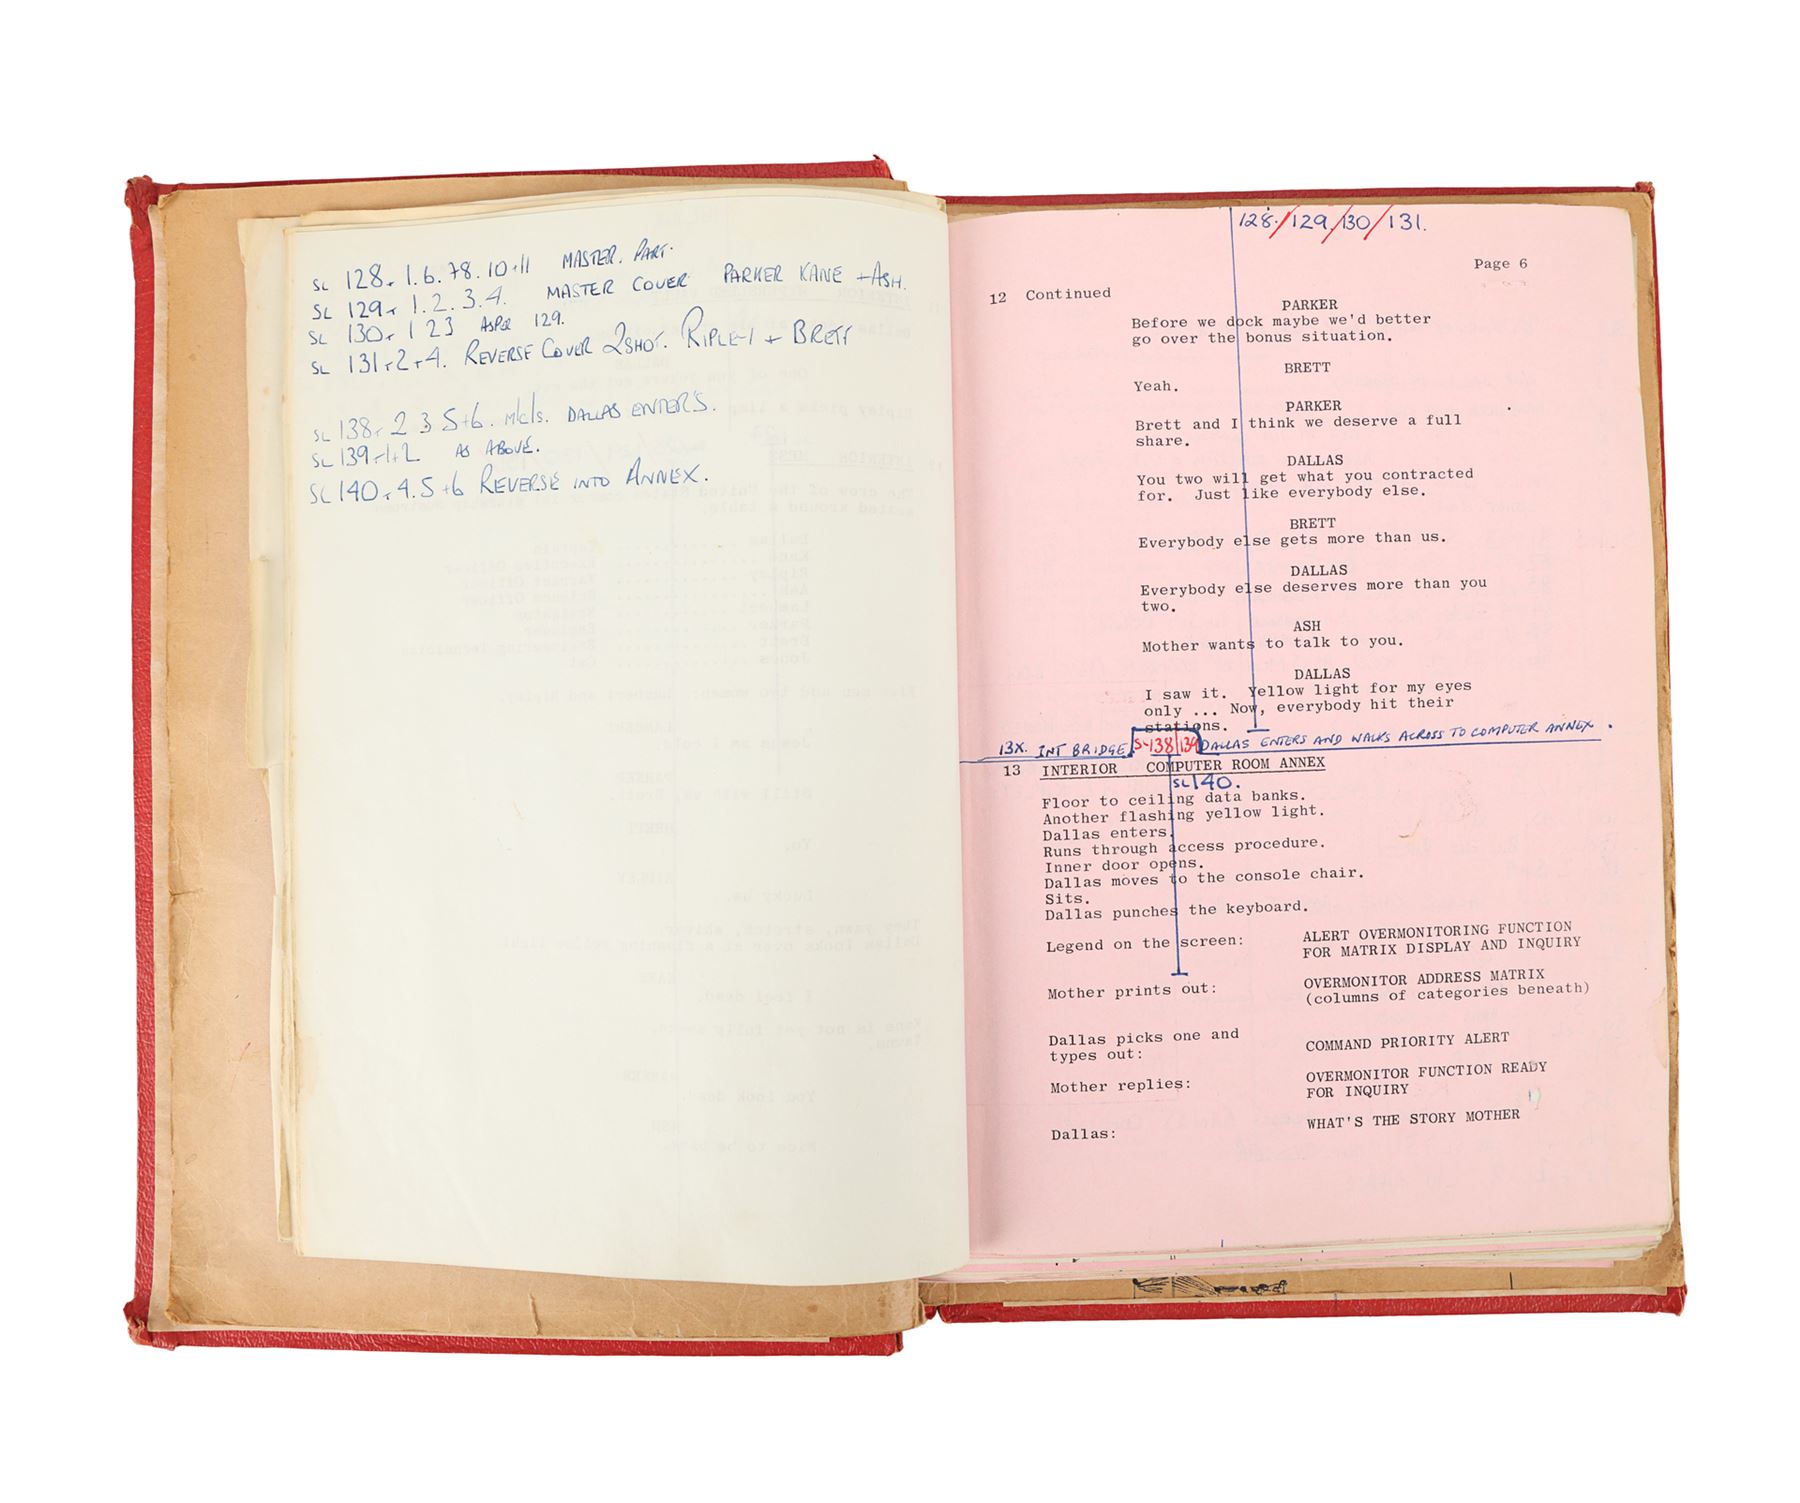 SL 128. 1.6.78.10+11 MASTER. PART.
SL 129. 1.2.3.4. MASTER COVER PARKER KANE + ASH.
SL 130. 123 AS PER 129.
SL 131. 2+4. REVERSE COVER 2SHOT. RIPLEY + BRETT
SL 138. 2 3 5+6. M/C/S. DALLAS ENTERS.
SL 139. 1+2 AS ABOVE.
SL 140. 4.5+6 REVERSE INTO ANNEX.
128./129./130/131.
Page 6
12 Continued
PARKER
Before we dock maybe we'd better
go over the bonus situation.
BRETT
Yeah.
PARKER
Brett and I think we deserve a full
share.
DALLAS
You two will get what you contracted
for. Just like everybody else.
BRETT
Everybody else gets more than us.
DALLAS
Everybody else deserves more than you
two.
ASH
Mother wants to talk to you.
DALLAS
I saw it. Yellow light for my eyes
only ... Now, everybody hit their
stations.
13X. INT BRIDGE. SL138/139 DALLAS ENTERS AND WALKS ACROSS TO COMPUTER ANNEX.
13 INTERIOR COMPUTER ROOM ANNEX
SL140.
Floor to ceiling data banks.
Another flashing yellow light.
Dallas enters.
Runs through access procedure.
Inner door opens.
Dallas moves to the console chair.
Sits.
Dallas punches the keyboard.
Legend on the screen: ALERT OVERMONITORING FUNCTION
FOR MATRIX DISPLAY AND INQUIRY
Mother prints out: OVERMONITOR ADDRESS MATRIX
(columns of categories beneath)
Dallas picks one and
types out: COMMAND PRIORITY ALERT
Mother replies: OVERMONITOR FUNCTION READY
FOR INQUIRY
Dallas: WHAT'S THE STORY MOTHER